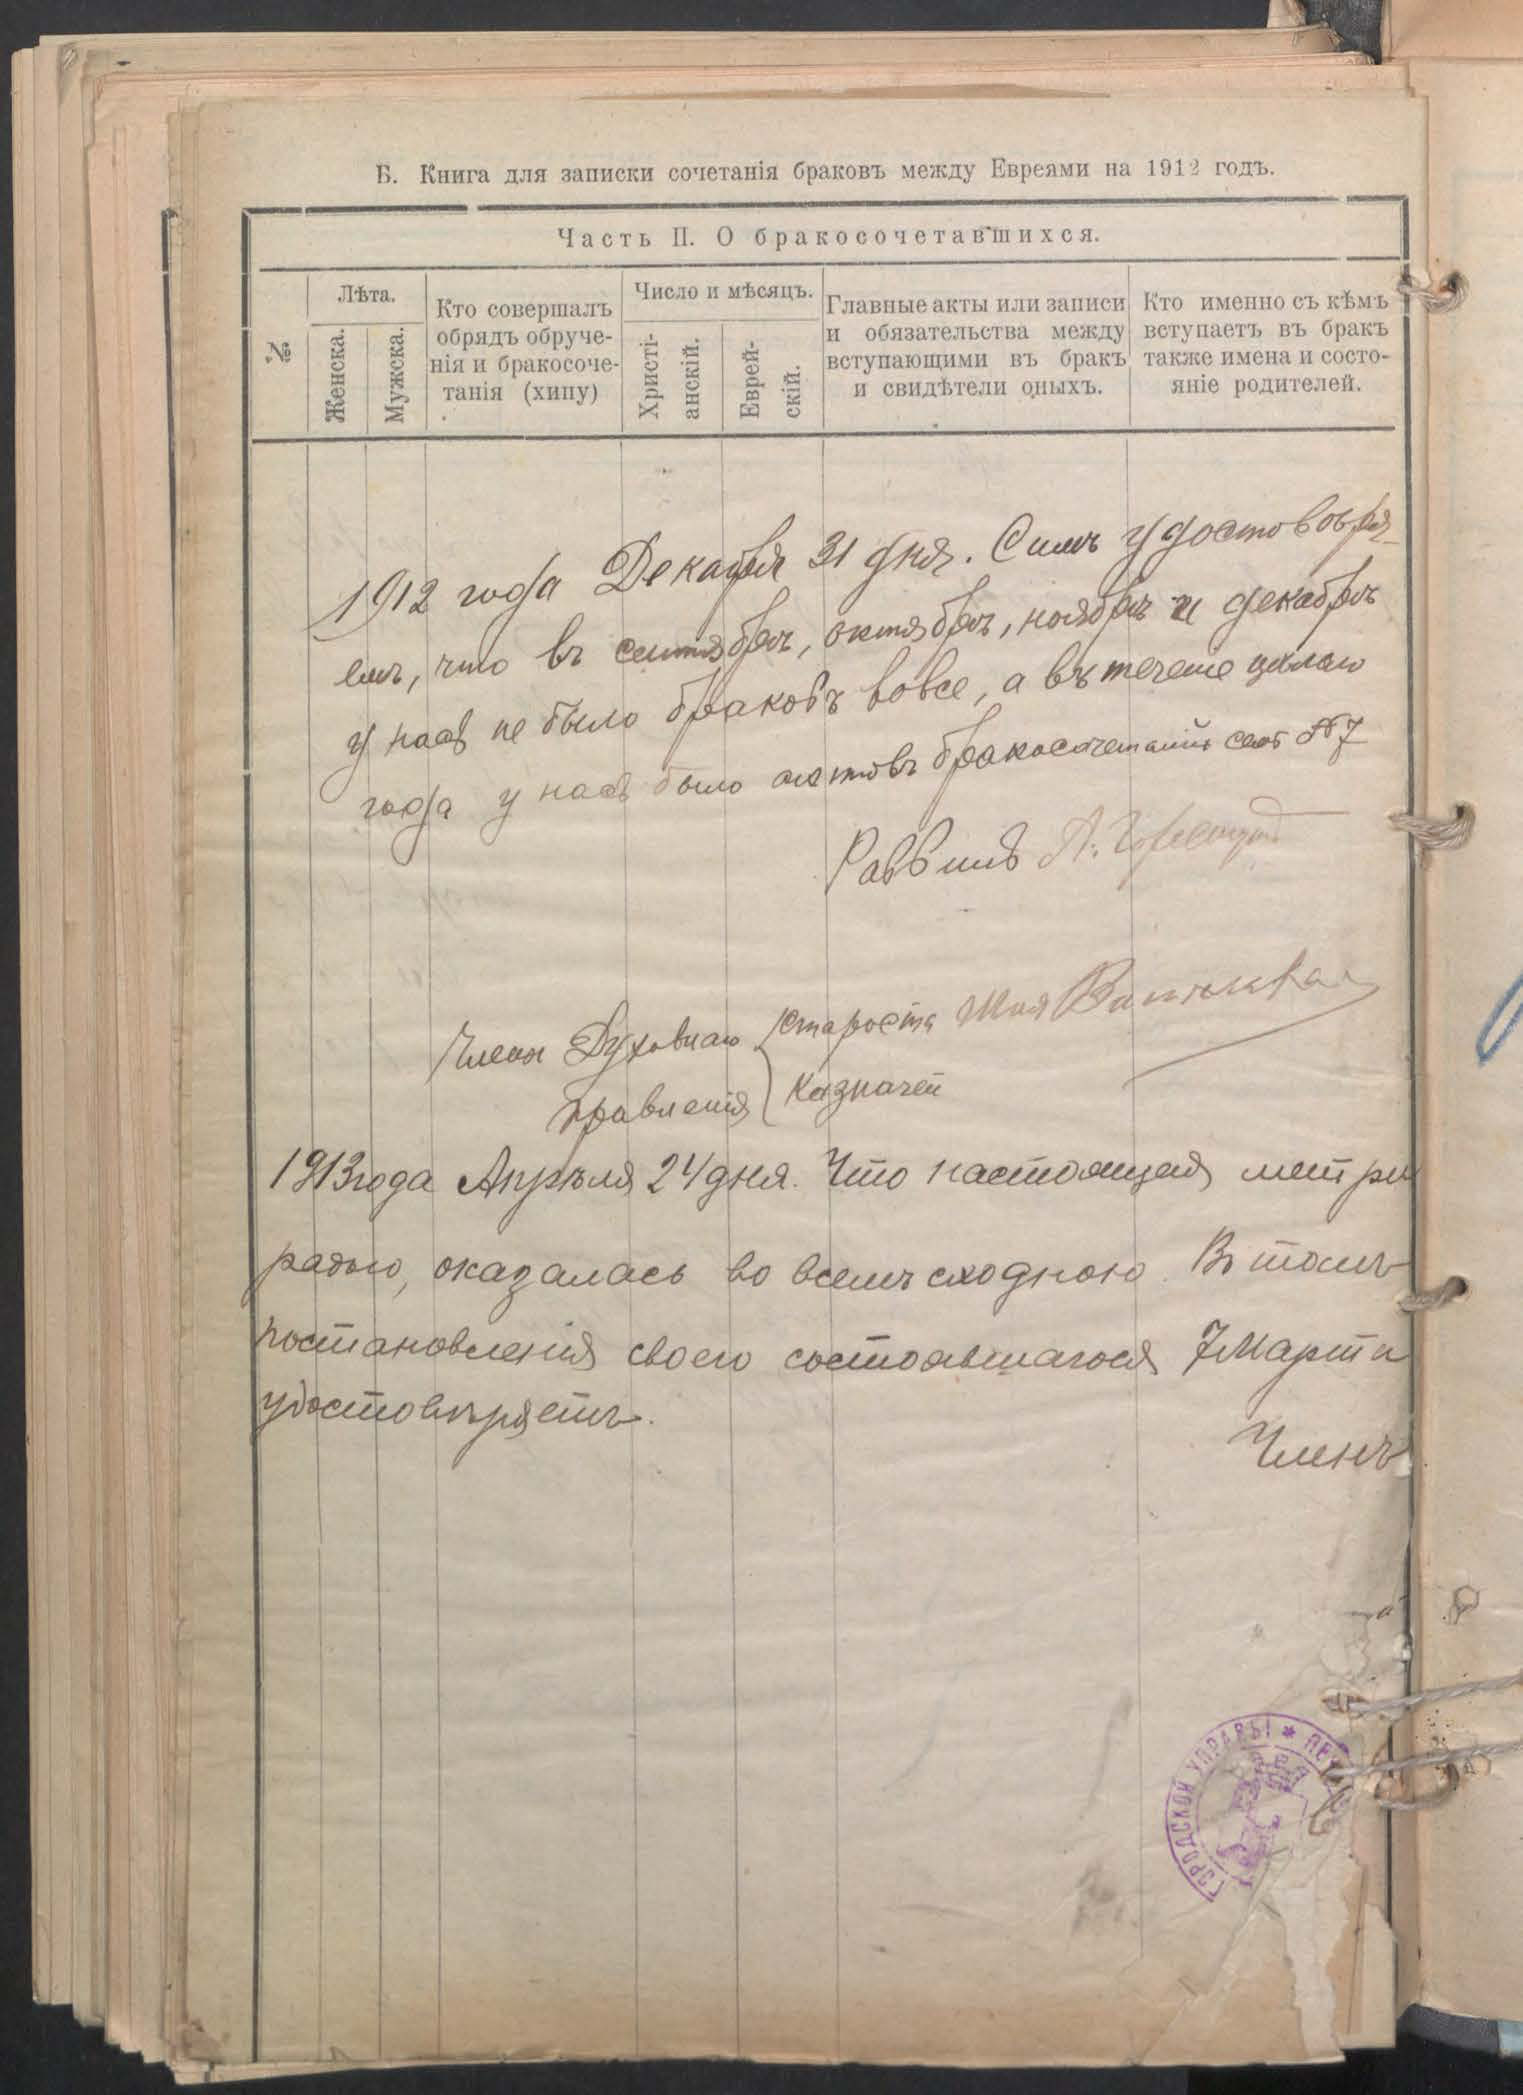 Б. Книга для записки сочетанія браковъ между Евреями на 1912 годъ.
Часть II. О бракосочетавшихся.
№
Лѣта.
Женска.
Мужска.
Кто совершалъ
обрядъ обруче-
нія и бракосоче-
танія (хипу)
Число и мѣсяцъ.
Христі-
анскій.
Еврей-
скій.
Главные акты или записи
и обязательства между
вступающими въ бракъ
и свидѣтели оныхъ.
Кто именно съ кѣмъ
вступаетъ въ бракъ
также имена и состо-
яніе родителей.
1912 года Декабря 31 дня. Симъ удостовѣря-
емъ, что въ сентябрѣ, октябрѣ, ноябрѣ и декабрѣ
у насъ не было браковъ вовсе, а въ теченіе цѣлаго
года у насъ было актовъ бракосочетаній семь №7
Раввинъ А.
Члены Духовнаго
Правленія
Староста
Казначей
1913 года Апрѣля 24 дня. Что настоящая метри
радью, оказалась во всемъ сходною. Въ томъ
постановленія своего состоявшагося 7 Марта
удостовѣряетъ.
Членъ
ГОРОДСКОЙ УПРАВЫ *